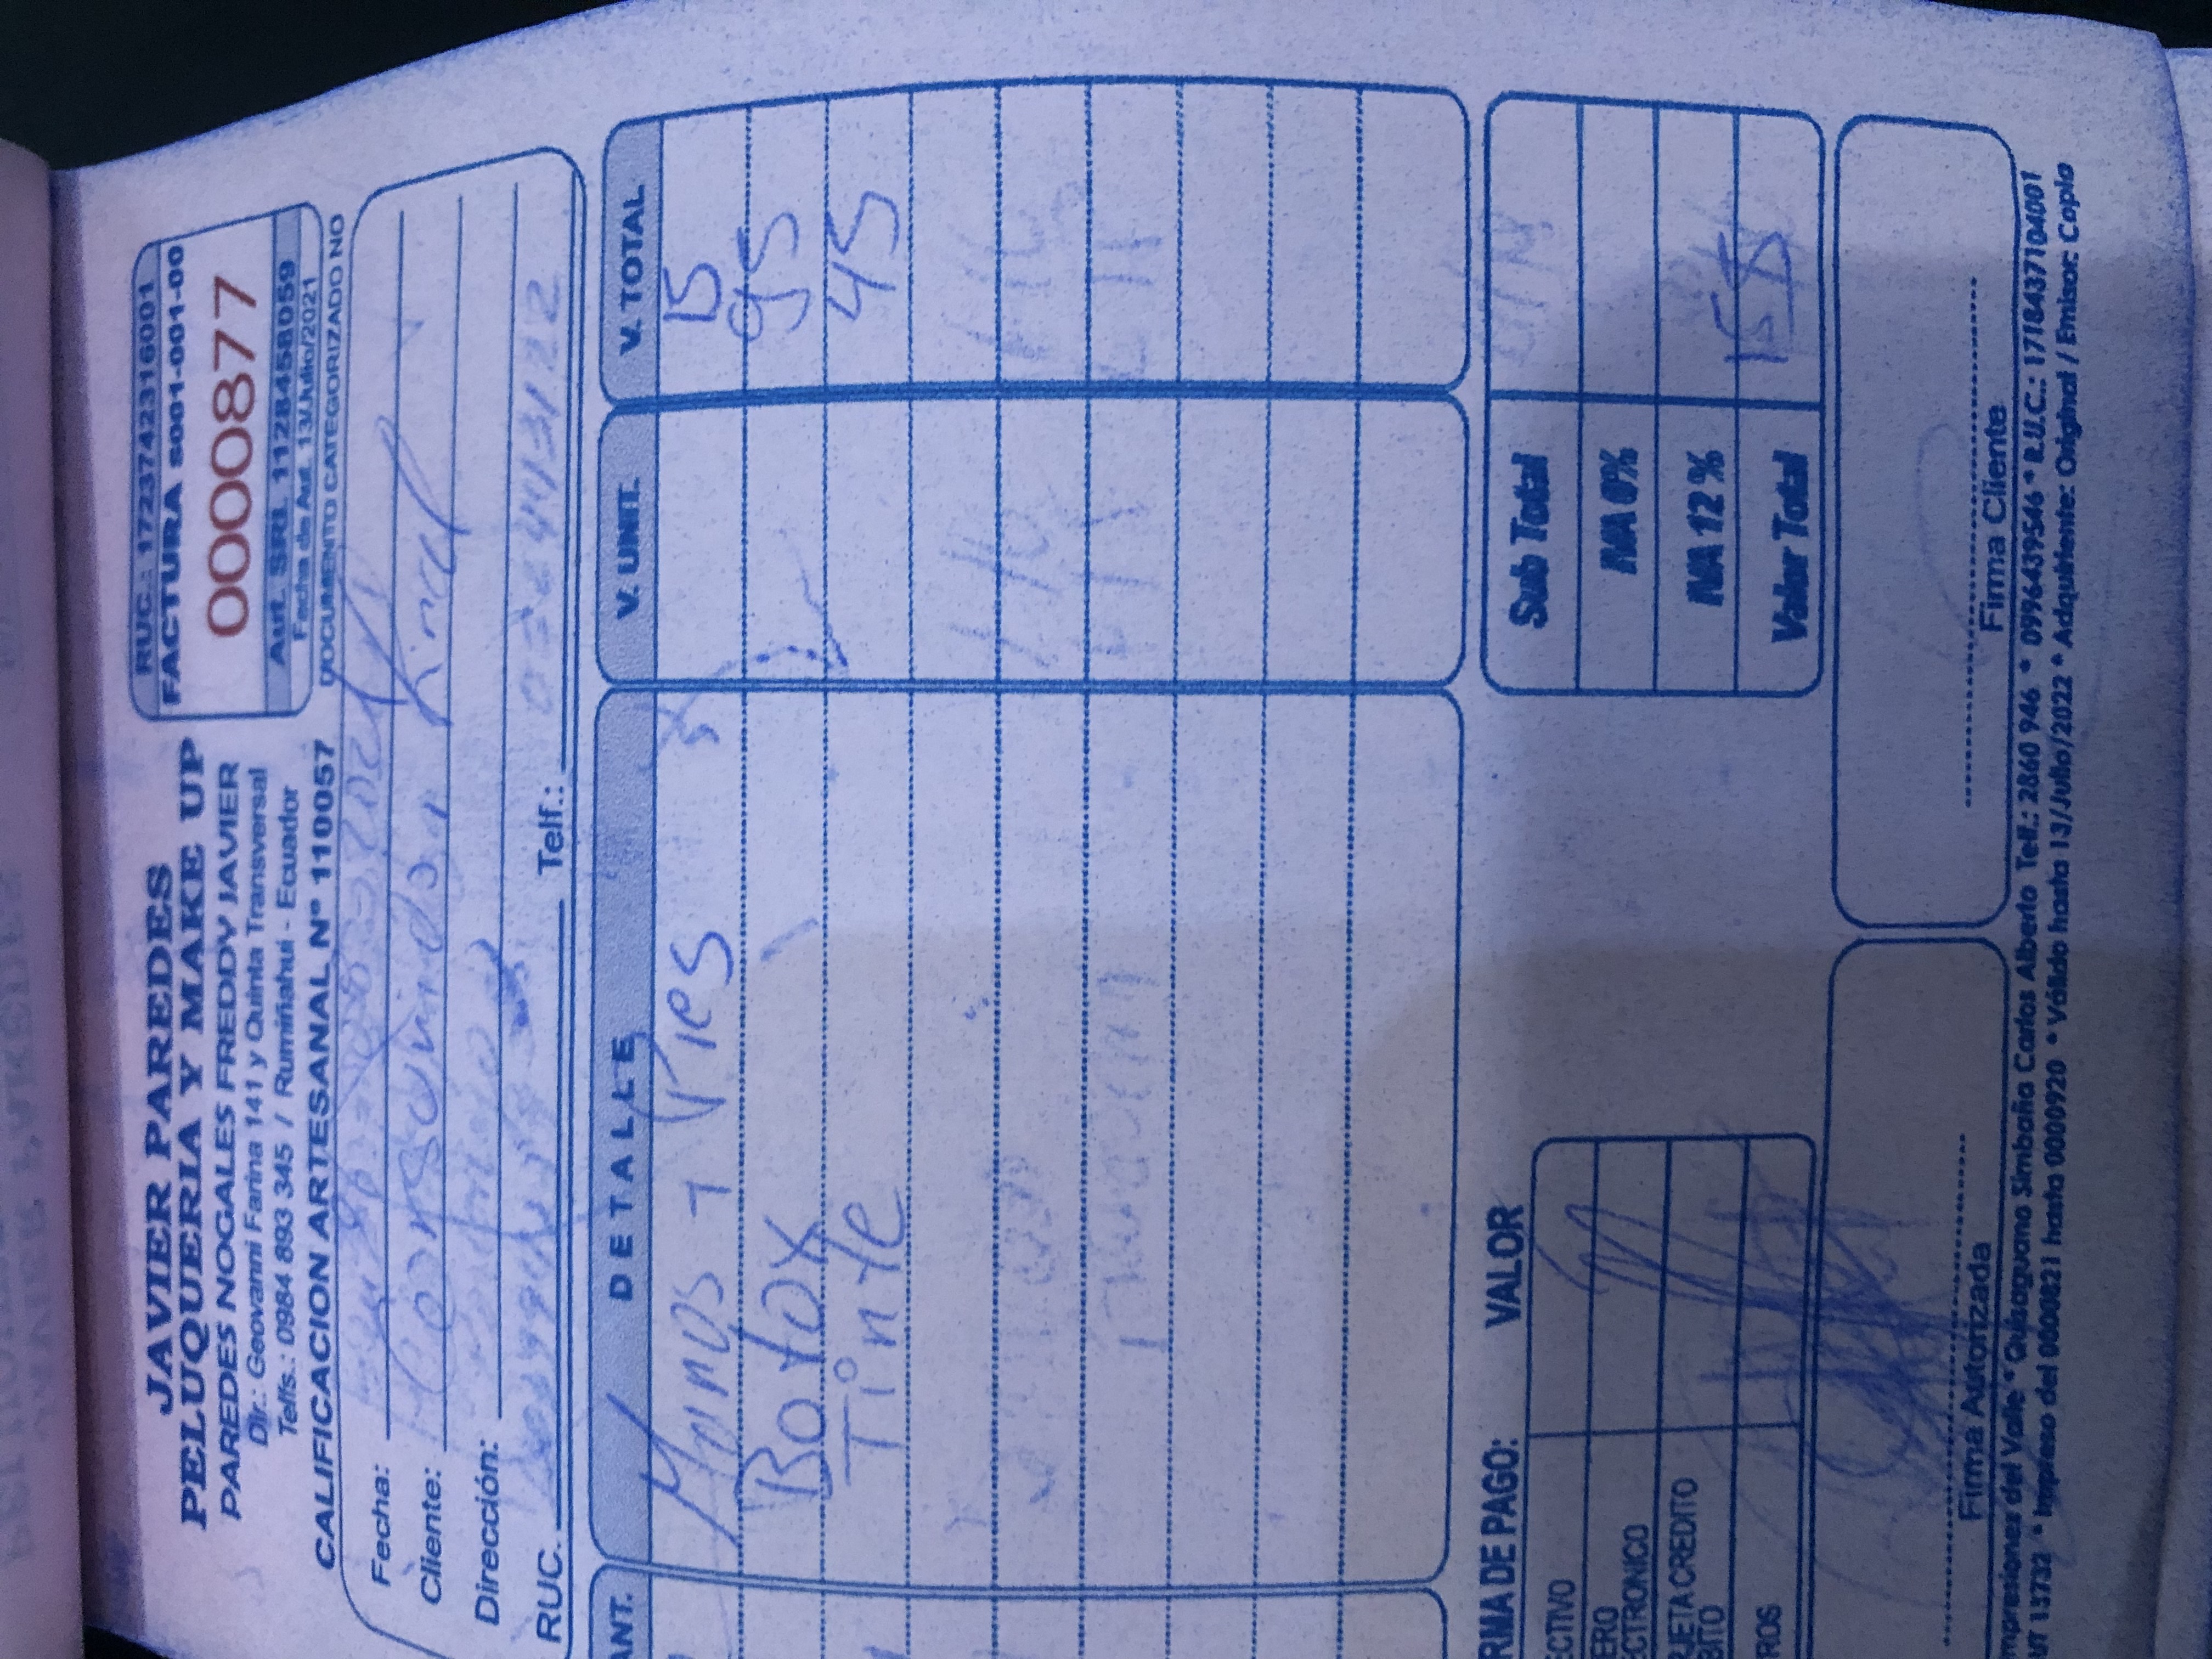 JAVIER PAREDES
PELUQUERIA Y MAKE UP
PAREDES NOGALES FREDDY JAVIER
Dir.: Geovanni Farina 141 y Quinta Transversal
Telfs.: 0984 893 345 / Rumiñahui - Ecuador
CALIFICACION ARTESANAL N° 110057
RUC.: 1723742316001
FACTURA S001-001-00
0000877
Aut. SRI. 1128458059
Fecha de Aut. 13/Julio/2021
DOCUMENTO CATEGORIZADO NO
Fecha:
Cliente:
Dirección:
RUC. Telf.:
ANT. DETALLE V. UNIT. V. TOTAL
Manos + Pies 15
Botox 95
Tinte 45
RMA DE PAGO: VALOR
ECTIVO
ERO
ECTRONICO
RJETA CREDITO
BITO
ROS
Sub Total
IVA 0%
IVA 12 %
Valor Total 155
Firma Autorizada
Firma Cliente
mpresiones del Valle * Quisaguano Simbaña Carlos Alberto Telf.: 2860 946 * 0996439546 * R.U.C.: 1718437104001
UT 13732 * Impreso del 0000821 hasta 0000920 * Válido hasta 13/Julio/2022 * Adquiriente: Original / Emisor: Copia